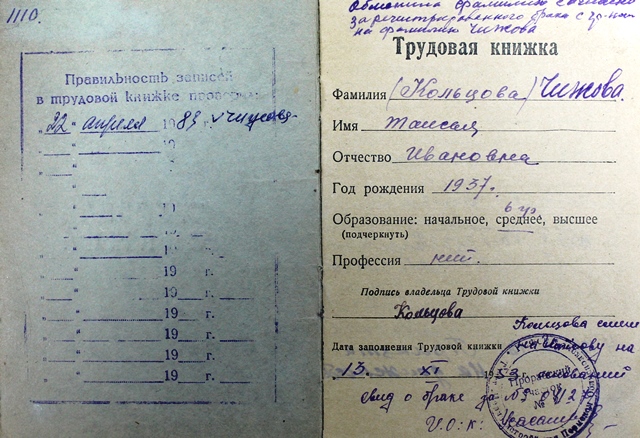 1110.
Правильность записей
в трудовой книжке проверил
„22" апреля 1983 г. Чижова
„ " 19
„ "
„ "
„ " 19
„ " 19 г.
„ " 19 г.
„ " 19 г.
„ " 19 г.
„ " 19 г.
„ " 19 г.
„ " 19 г.
„ " 19 г.
фамилию согласно
зарегистрированного брака с гр-ном
на фамилию Чижова
Трудовая книжка
Фамилия (Кольцова) Чижова.
Имя Таисия
Отчество Ивановна
Год рождения 1937.
Образование: начальное, среднее, высшее
(подчеркнуть)
Профессия
Подпись владельца Трудовой книжки
Кольцова
Кольцова
Дата заполнения Трудовой книжки на Чижову на
„13." XI 195 оснований
о браке за №
И.О.К: